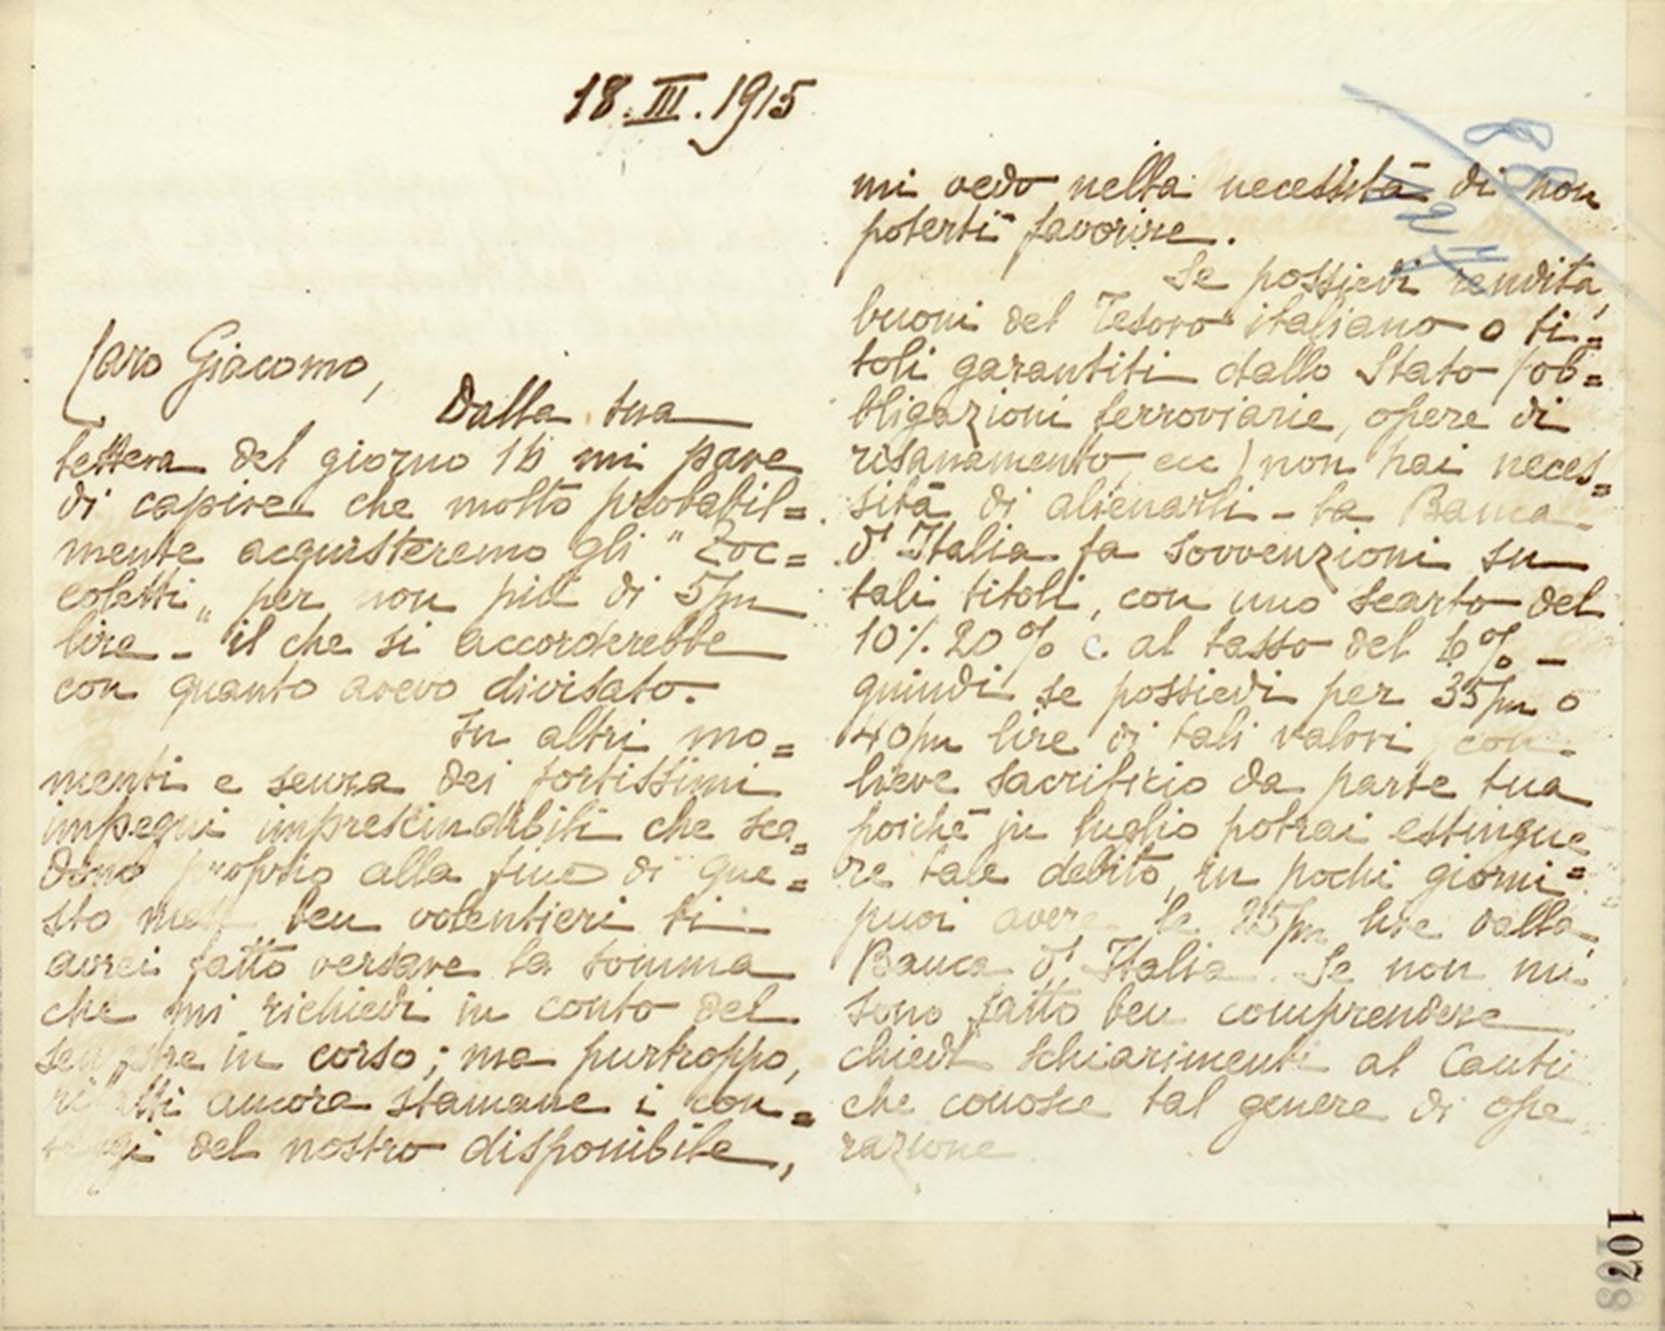 18.III.1915
Caro Giacomo,
Dalla tua
lettera del giorno 16 mi pare
di capire che molto probabil=
mente acquisteremo gli "Zoc=
coletti" per non più di 5/m
lire – il che si accorderebbe
con quanto avevo divisato.
In altri mo=
menti e senza dei fortissimi
impegni imprescindibili che sca=
dono proprio alla fine di que=
sto mese ben volentieri ti
avrei fatto versare la somma
che mi richiedi in conto del
semestre in corso; ma purtroppo,
rifatti ancora stamane i con=
teggi del nostro disponibile,
mi vedo nella necessità di non
poterti favorire.
Se possiedi rendita,
buoni del Tesoro italiano o ti=
toli garantiti dallo Stato (ob=
bligazioni ferroviarie, opere di
risanamento, ecc) non hai neces=
sità di alienarli – la Banca
d'Italia fa sovvenzioni su
tali titoli, con uno scarto del
10% 20% e al tasso del 6% –
quindi se possiedi per 35/m o
40/m lire di tali valori, con
lieve sacrificio da parte tua
poichè in luglio potrai estingue
re tale debito, in pochi giorni=
puoi avere le 25/m lire dalla
Banca d'Italia. Se non mi
sono fatto ben comprendere
chiedi schiarimenti al
che conosce tal genere di ope
razione
107
108